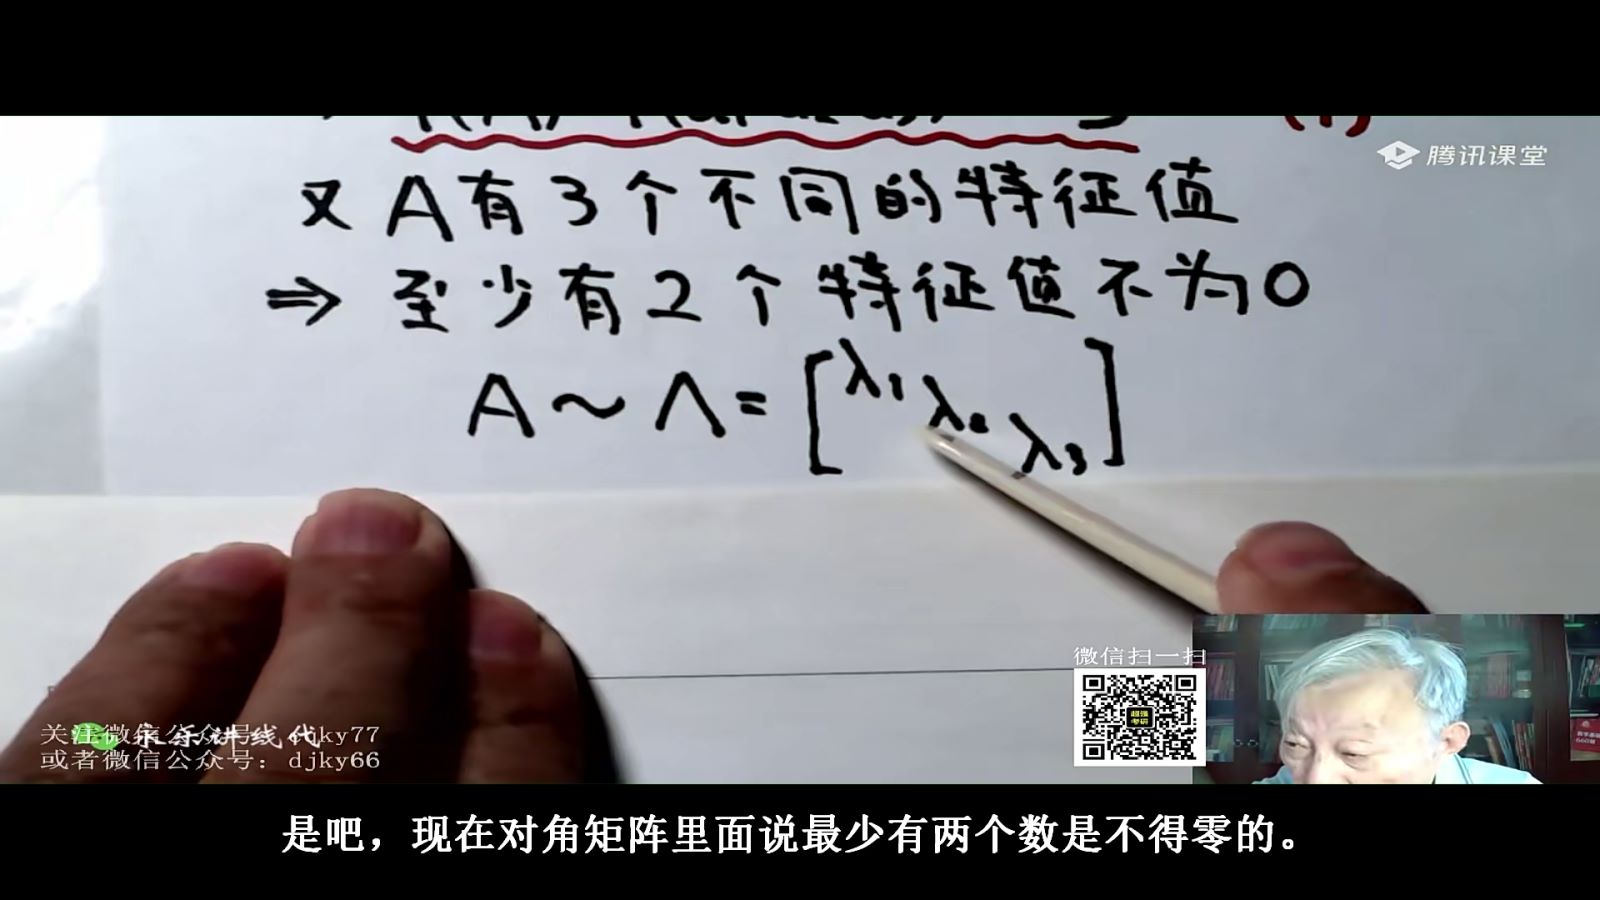 腾讯课堂
又 A有3个不同的特征值
⇒ 至少有2个特征值不为0
A ~ Λ = [λ₁ λ₂ λ₃]
微信扫一扫
超强
考研
关注微信公众号：djky77
或者微信公众号：djky66
讲线代
是吧，现在对角矩阵里面说最少有两个数是不得零的。